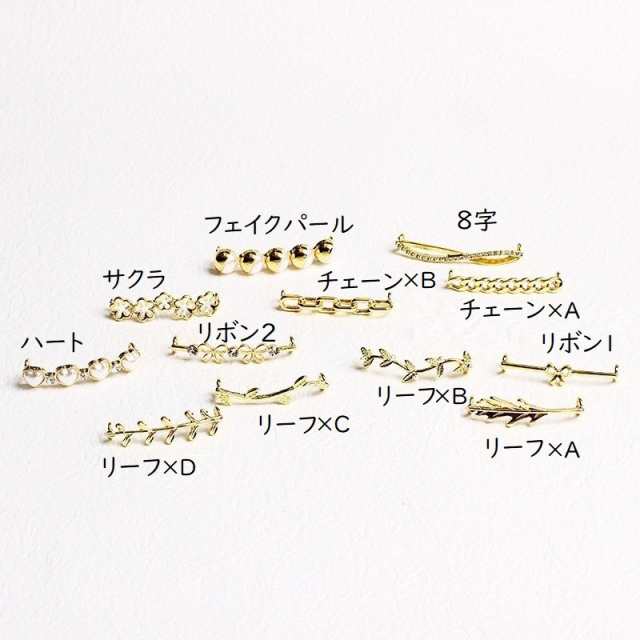 フェイクパール
8字
サクラ
チェーン×B
チェーン×A
ハート
リボン2
リボン1
リーフ×B
リーフ×C
リーフ×A
リーフ×D